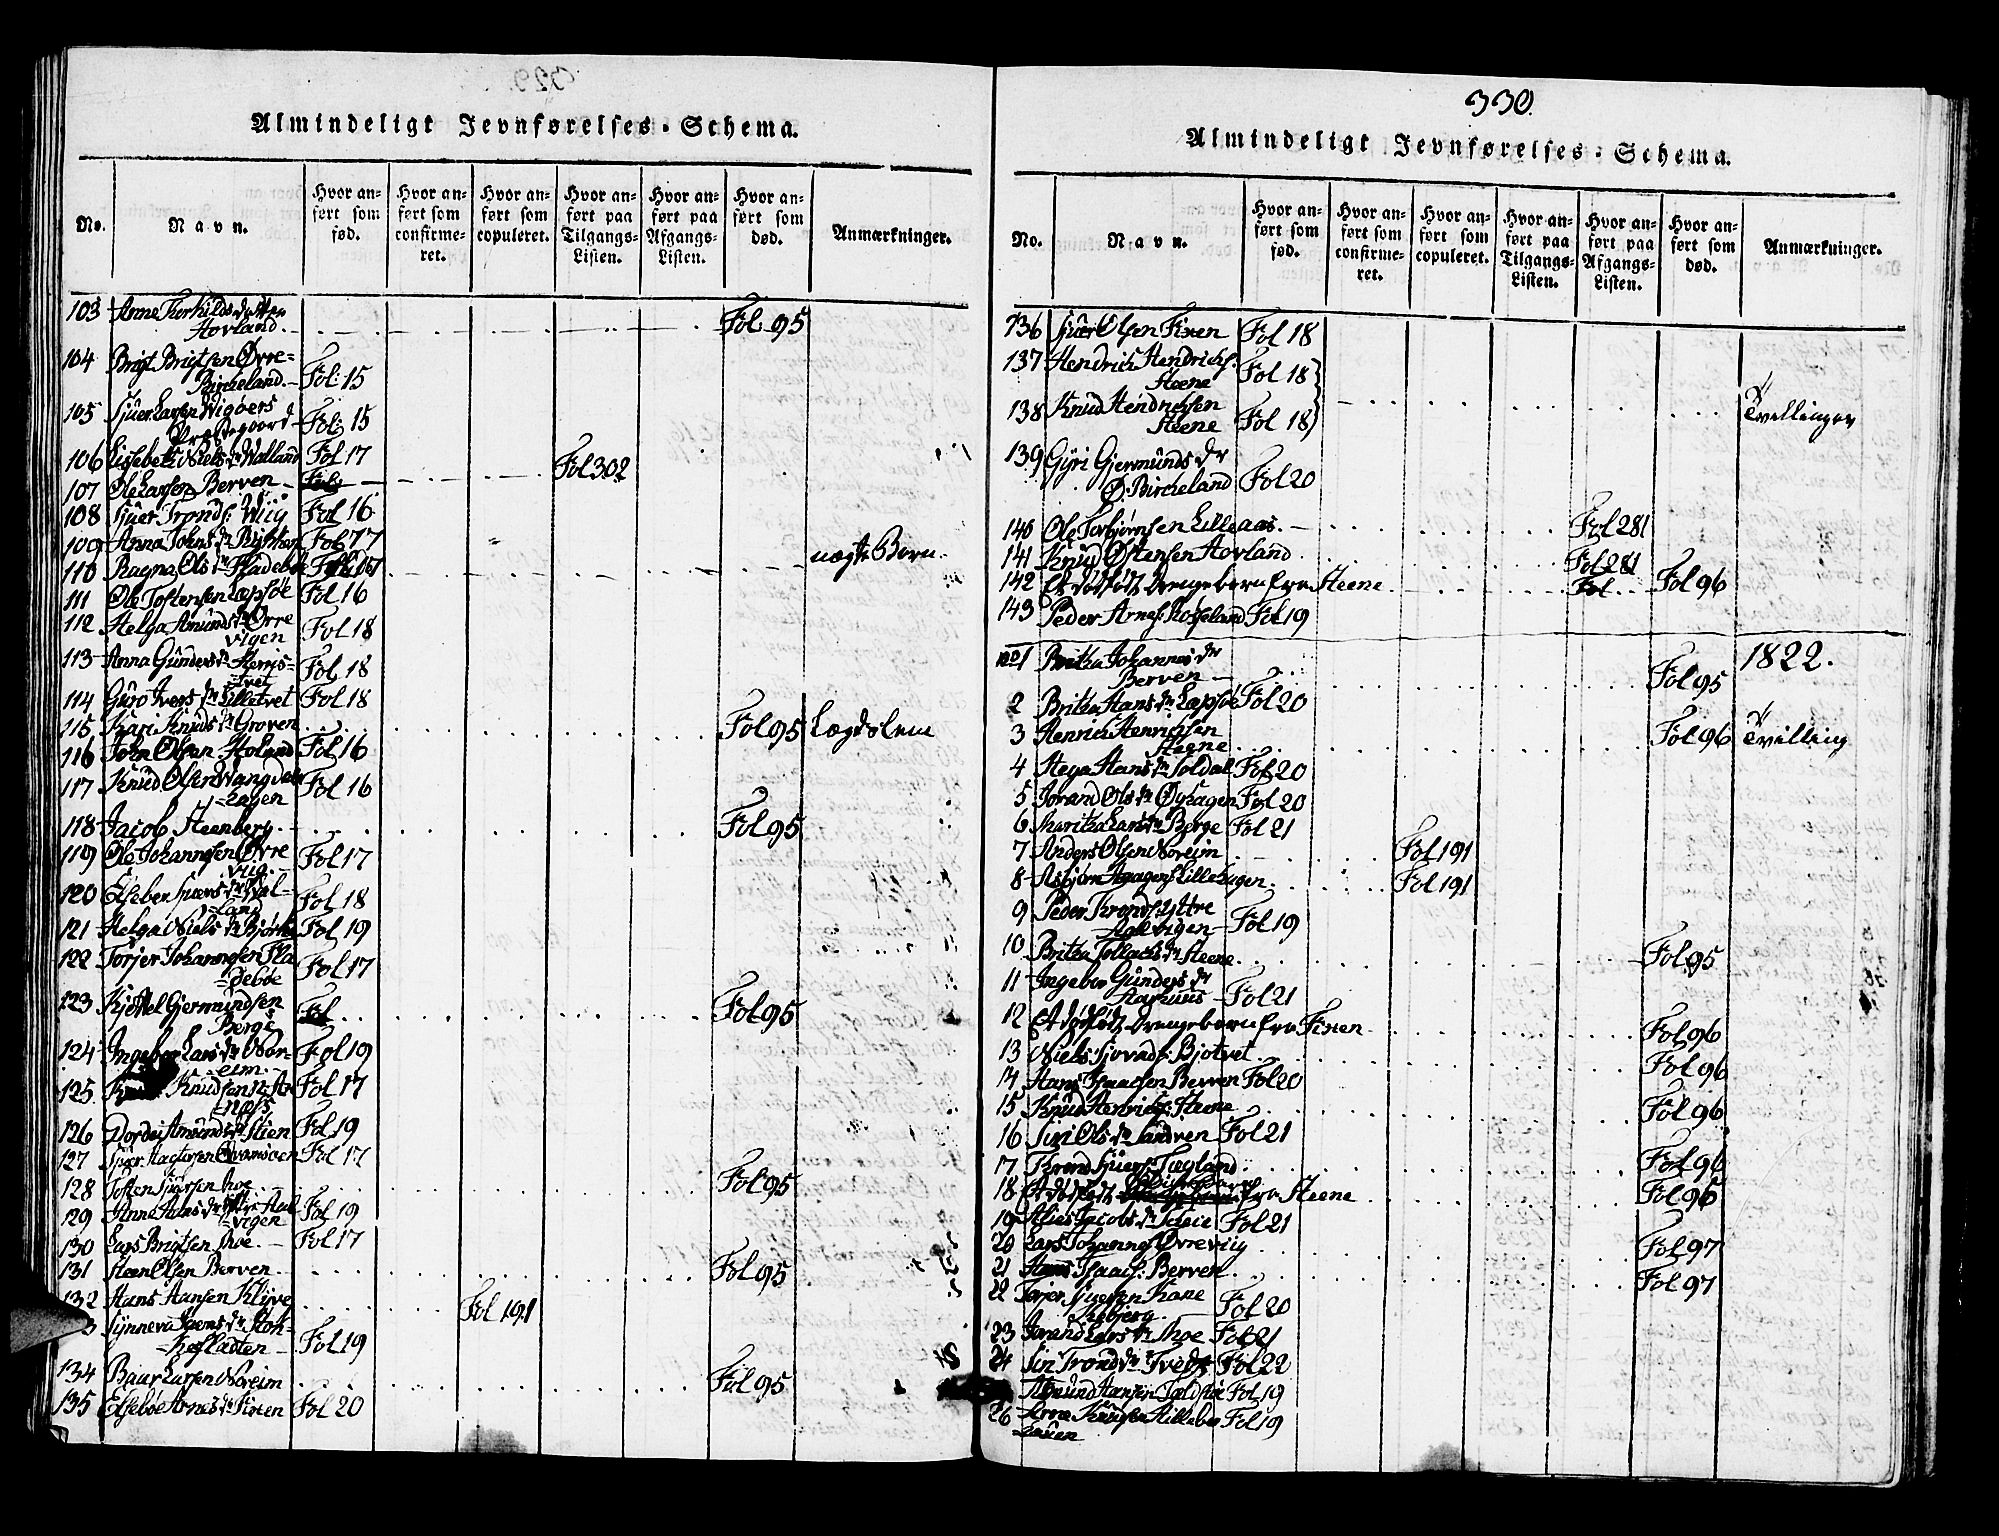 Almindeligt Jevnførelses-Schema.
No.
Navn.
Hvor anført som fød.
Hvor anført som confirmeret.
Hvor anført som copuleret.
Hvor anført paa Tilgangs-Listen.
Hvor anført paa Afgangs-Listen.
Hvor anført som død.
Anmærkninger.
103 Anne Thorkilds dtter
Hovland. Fol. 95
104 Brigt Brigtsen Øvre-
Bircheland. Fol. 15
105 Sjuer Larsen Wigøers
Præstegaard Fol. 15
106 Lissebeth Niels dr Walland Fol 17
107 Ole Larsen Berven Fol 302
108 Sjuer Tronds: Wiig Fol 16
109 Anna Johns dr Fol 77
110 Ragna Ols dr Fladebøe uægte Børn.
111 Ole Tostensen Læpsøe Fol 16
112 Helga Amunds dr Øvre
vigen Fol 18
113 Anna Gunders dr
tvet Fol 18
114 Guro Ivers dr Lilletvet Fol 18
115 Kari Knuds dr Groven Fol 95 Lægdslem
116 John Olsen Holand Fol 16
117 Knud Olsen Wangdals
=hagen Fol 16
118 Jacob Steenberg Fol 95
119 Ole Johannsen Øvre
viig Fol 17
120 Elseber Sjuers dr Wal-
=land Fol 18
121 Helga Niels dr Fol 19
122 Torjer Johannsen Fla
=debøe Fol 17
123 Kjettel Gjermundsen
Berge Fol 95
124 Ingebor Lars dr Nor-
=eim Fol 19
125 Knudsen
Fol 17
126 Dordei Amunds dr Stien Fol 19
127 Sjuer Fol 17
128 Tosten Sjursen Fol 95
129 Anne Hans dr Yttre Aal
=vigen Fol 19
130 Lars Brigtsen Fol 17
131 Steen Olsen Berven Fol 95
132 Hans Hansen Klyve Fol 191
3 Synneva dr Stok-
Fol 19
134 Baar Larsen Noreim Fol 95
135 Elsebøe Arnes dr Fol 20
330.
Almindeligt Jevnførelses-Schema.
No.
Navn.
Hvor anført som fød.
Hvor anført som confirmeret.
Hvor anført som copuleret.
Hvor anført paa Tilgangs-Listen.
Hvor anført paa Afgangs-Listen.
Hvor anført som død.
Anmærkninger.
136 Sjuer Olsen Fixen Fol 18
137 Hendrich Hendrichs.
Steene Fol 18
138 Knud Hendrichsen
Steene Fol 18 Tvillinger
139 Gyri Gjermunds dr
Ø. Bircheland Fol 20
140 Ole Torbjørnsen Lilleaas Fol 281
141 Knud Østensen Hovland Fol 281
142 Et dødfødt Drengebarn fra Steene Fol 96
143 Peder Arnes: Rosseland Fol 19
No 1 Britha Johannes dr 1822.
Berven Fol 95
2 Britha Hans dr Læpsøe Fol 20
3 Henrich Henrichsen
Steene Fol 96 Tvilling
4 Hans dr Soldal Fol 20
5 Jorand Ols dr Fol 20
6 Maritha Lars dr Berge Fol 21
7 Anders Olsen Noreim Fol 191
8 Asbjørn Aaagens Lillehagen Fol 191
9 Peder Tronds: Yttre
Aalvigen Fol 19
10 Britha Tollachs dr Steene Fol 95
11 Ingebor Gunders dr
Fol 21
12 Et dødfødt Drengebarn fra Fixen Fol 96
13 Niels Bjotvet Fol 96
14 Hans Isaachsen Berven Fol 20
15 Knud Henrichs: Steene Fol 96
16 Siri Ols dr Sandven Fol 21
17 Trond Sjuers: Fol 96
18 Et dødfødt fra Steene Fol 96
19 Jacobs dr Fol 21
20 Lars Johannes Øvreviig Fol 97
21 Hans Isaach: Berven Fol 97
22 Torjer Kane
Fol 20
23 Jorand Lars dr Fol 21
24 Siri Trond dr Tvedt Fol 22
Amund Hansen Fol 19
26 Fol 19